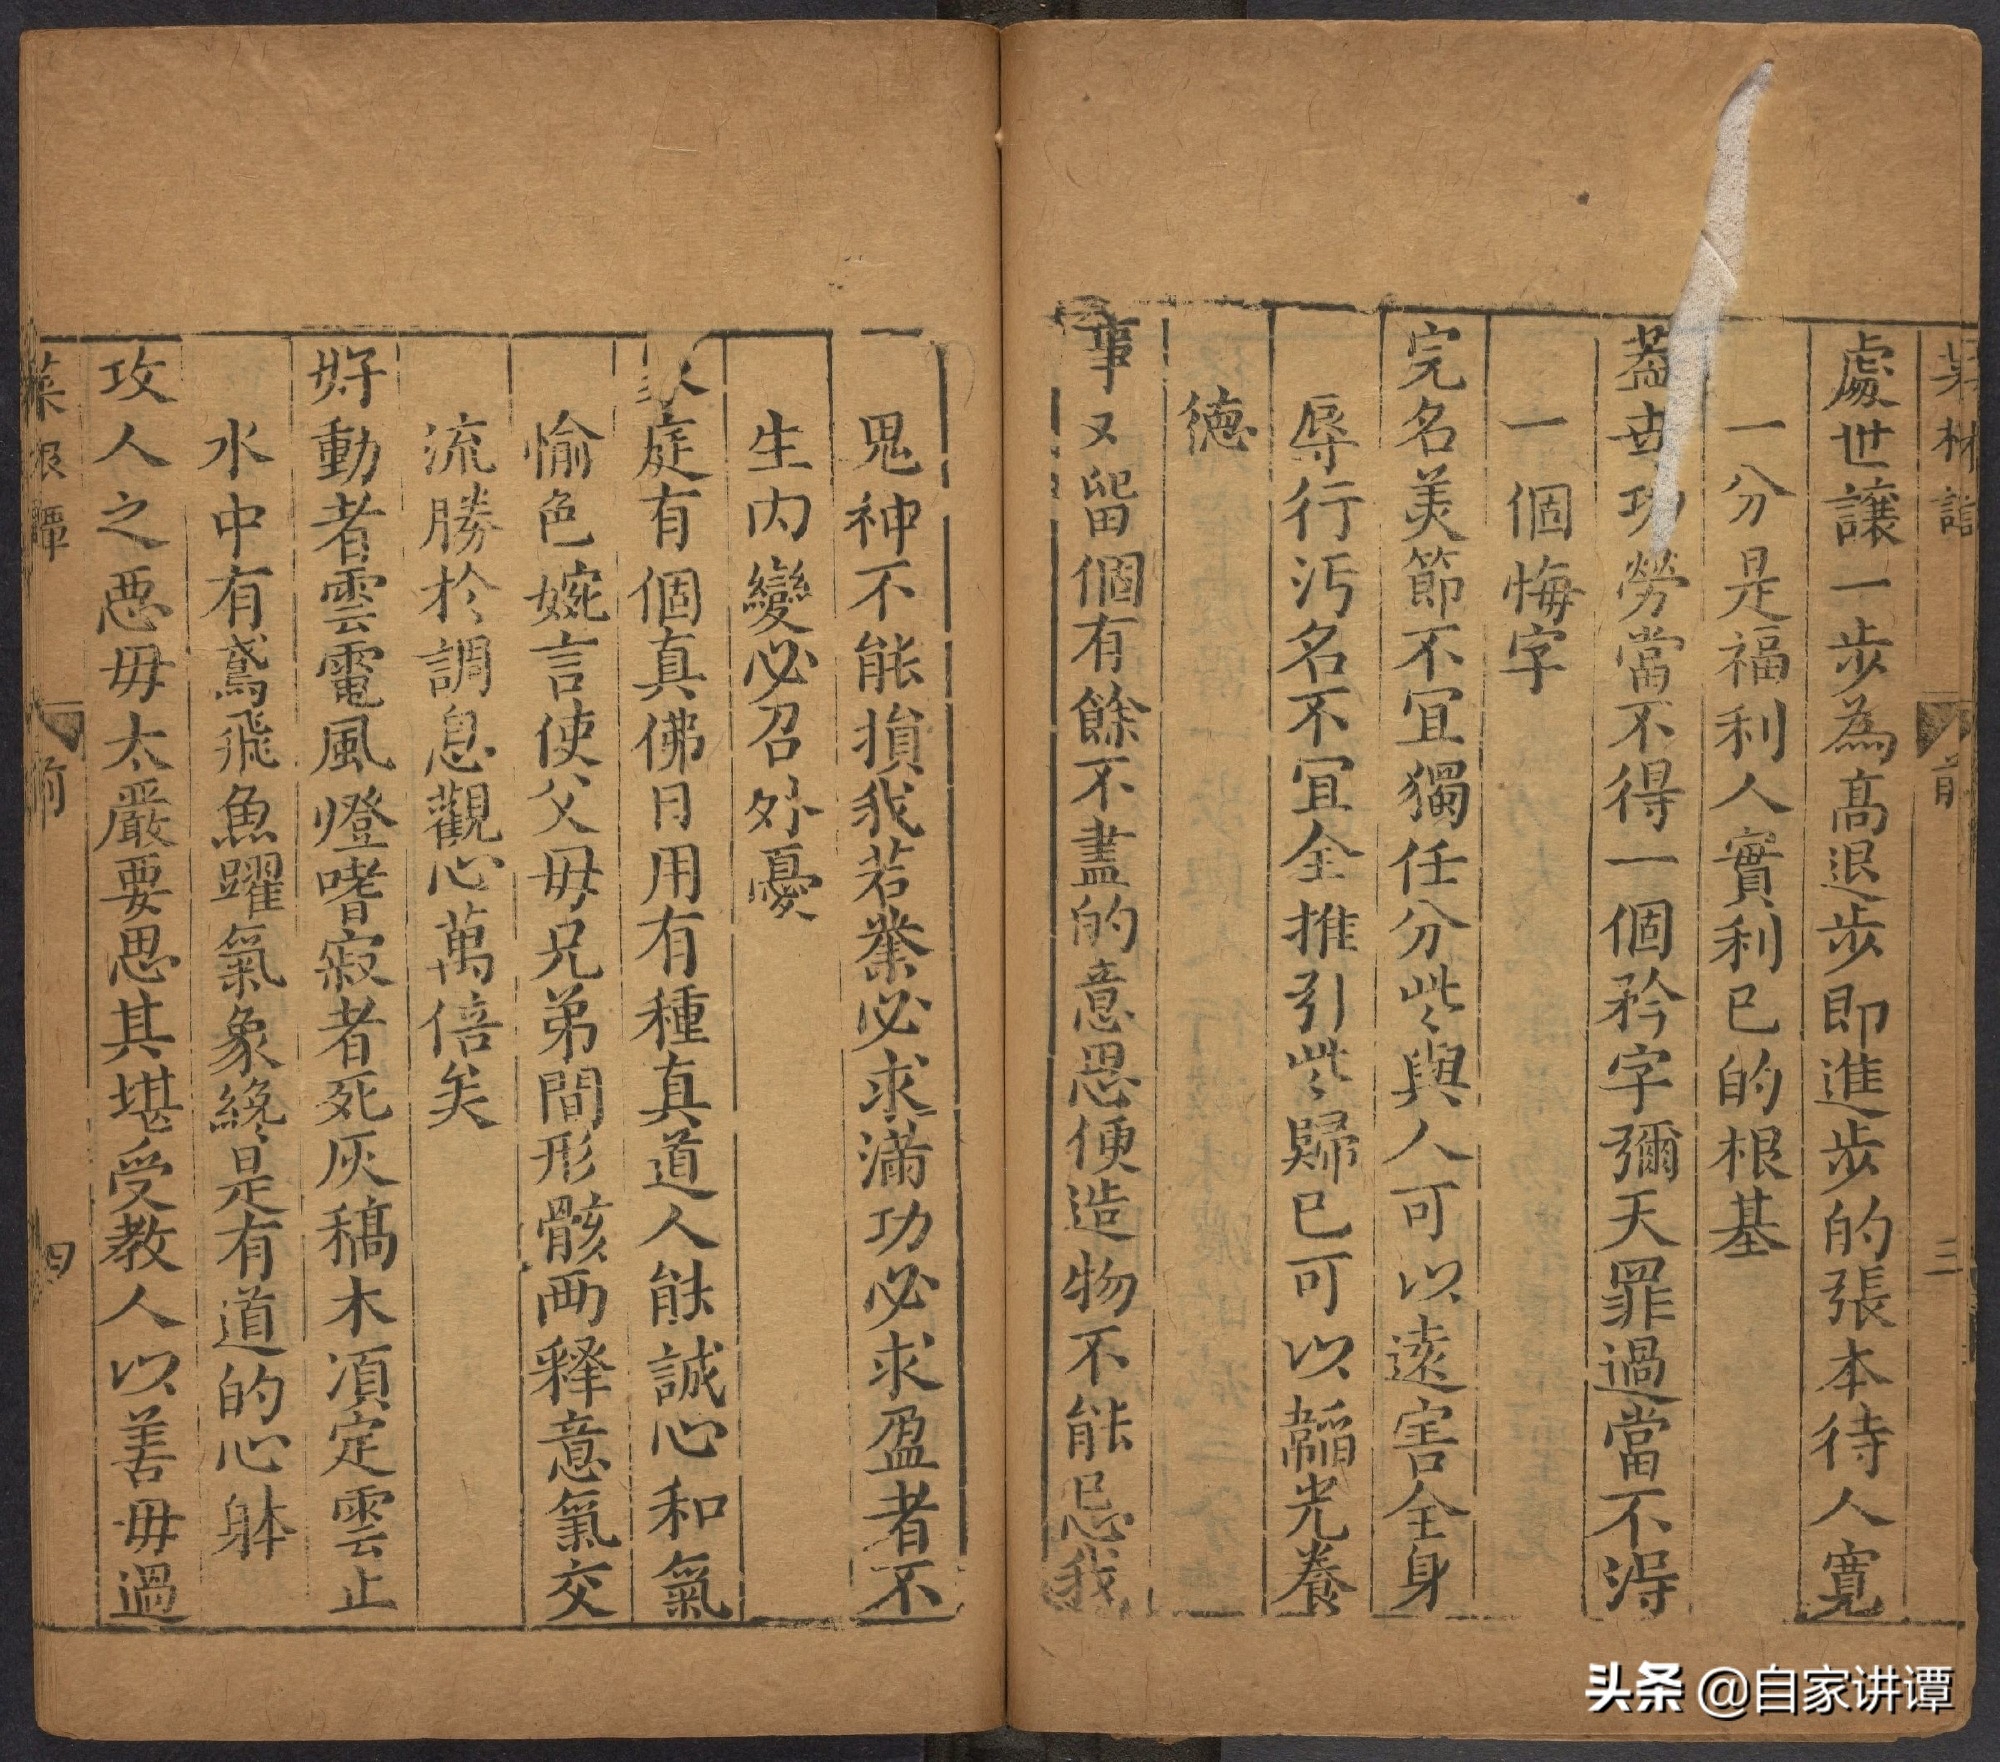 處世讓一步為高退步即進步的張本待人寬
一分是福利人實利已的根基
蓋世功勞當不得一個矜字彌天罪過當不得
一個悔字
完名美節不宜獨任分些與人可以遠害全身
辱行汚名不宜全推引些歸已可以韜光養
德
事又留個有餘不盡的意思便造物不能忌我
鬼神不能損我若業必求滿功必求盈者不
生內變必召外憂
家庭有個真佛日用有種真道人能誠心和氣
愉色婉言使父母兄弟間形骸兩释意氣交
流勝於調息觀心萬倍矣
好動者雲電風燈嗜寂者死灰稿木湏定雲止
水中有鳶飛魚躍氣象纔是有道的心躰
攻人之惡毋太嚴要思其堪受教人以善毋過
菜根譚 前 四
头条 @自家讲谭